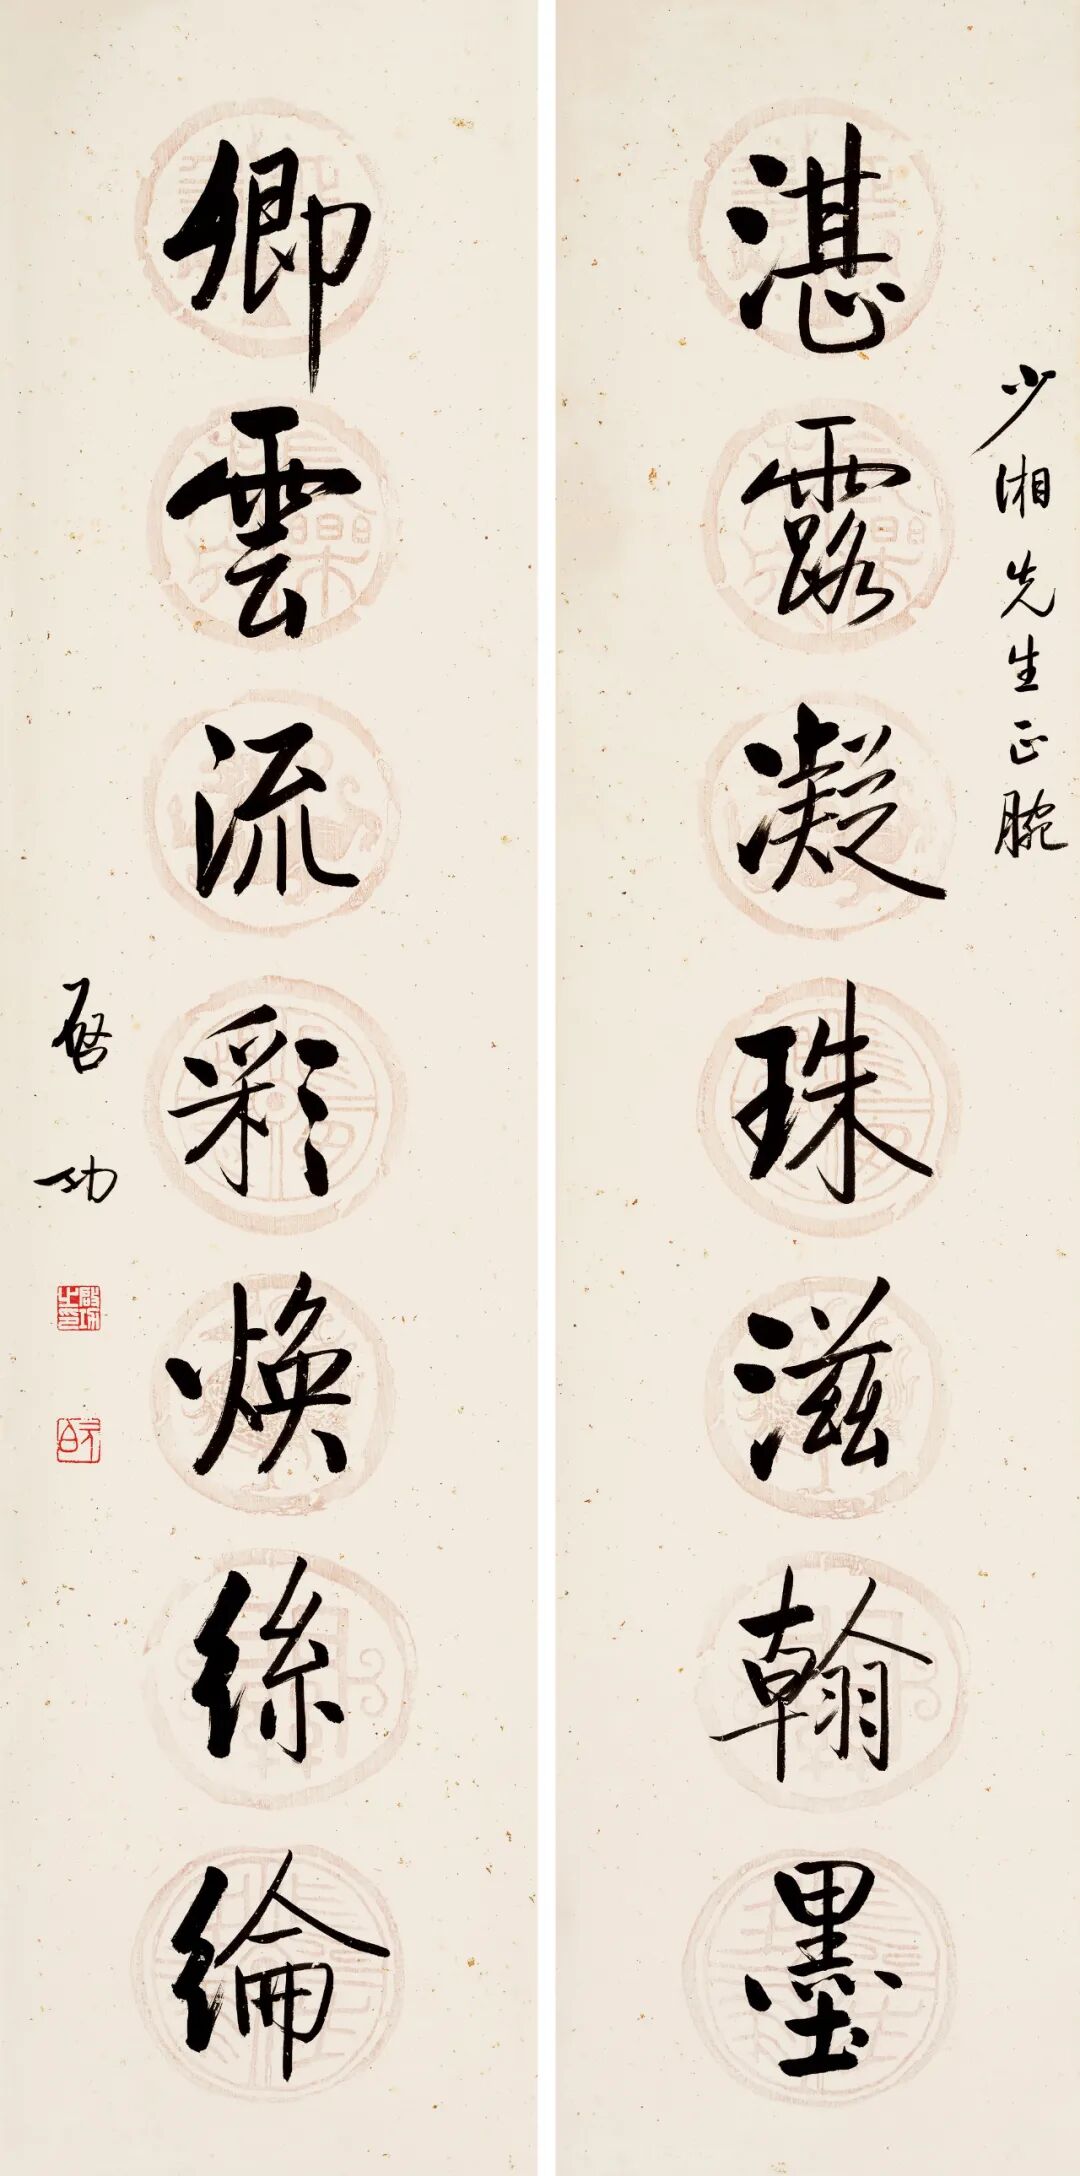 湛露凝珠滋翰墨
少湘先生正腕
卿雲流彩煥絲綸
启功